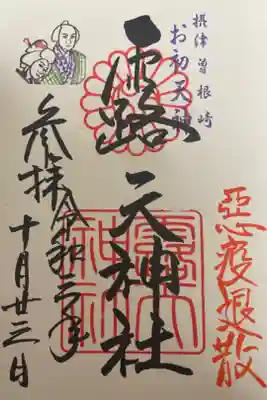 摂津曽根崎
お初天神
悪疫退散
露天神社
参拝令和二年
十月廿三日